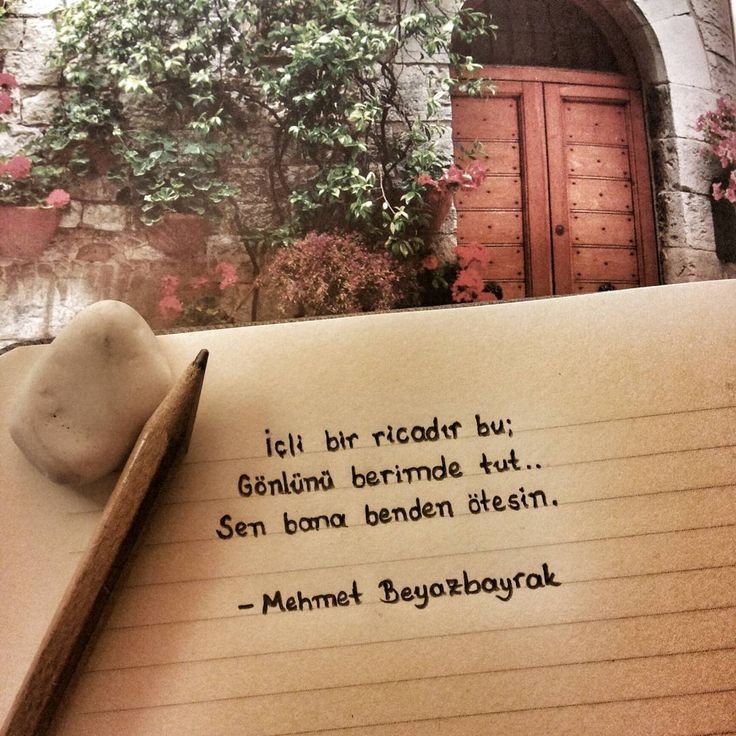 İçli bir ricadır bu;
Gönlünü berimde tut..
Sen bana benden ötesin.
- Mehmet Beyazbayrak